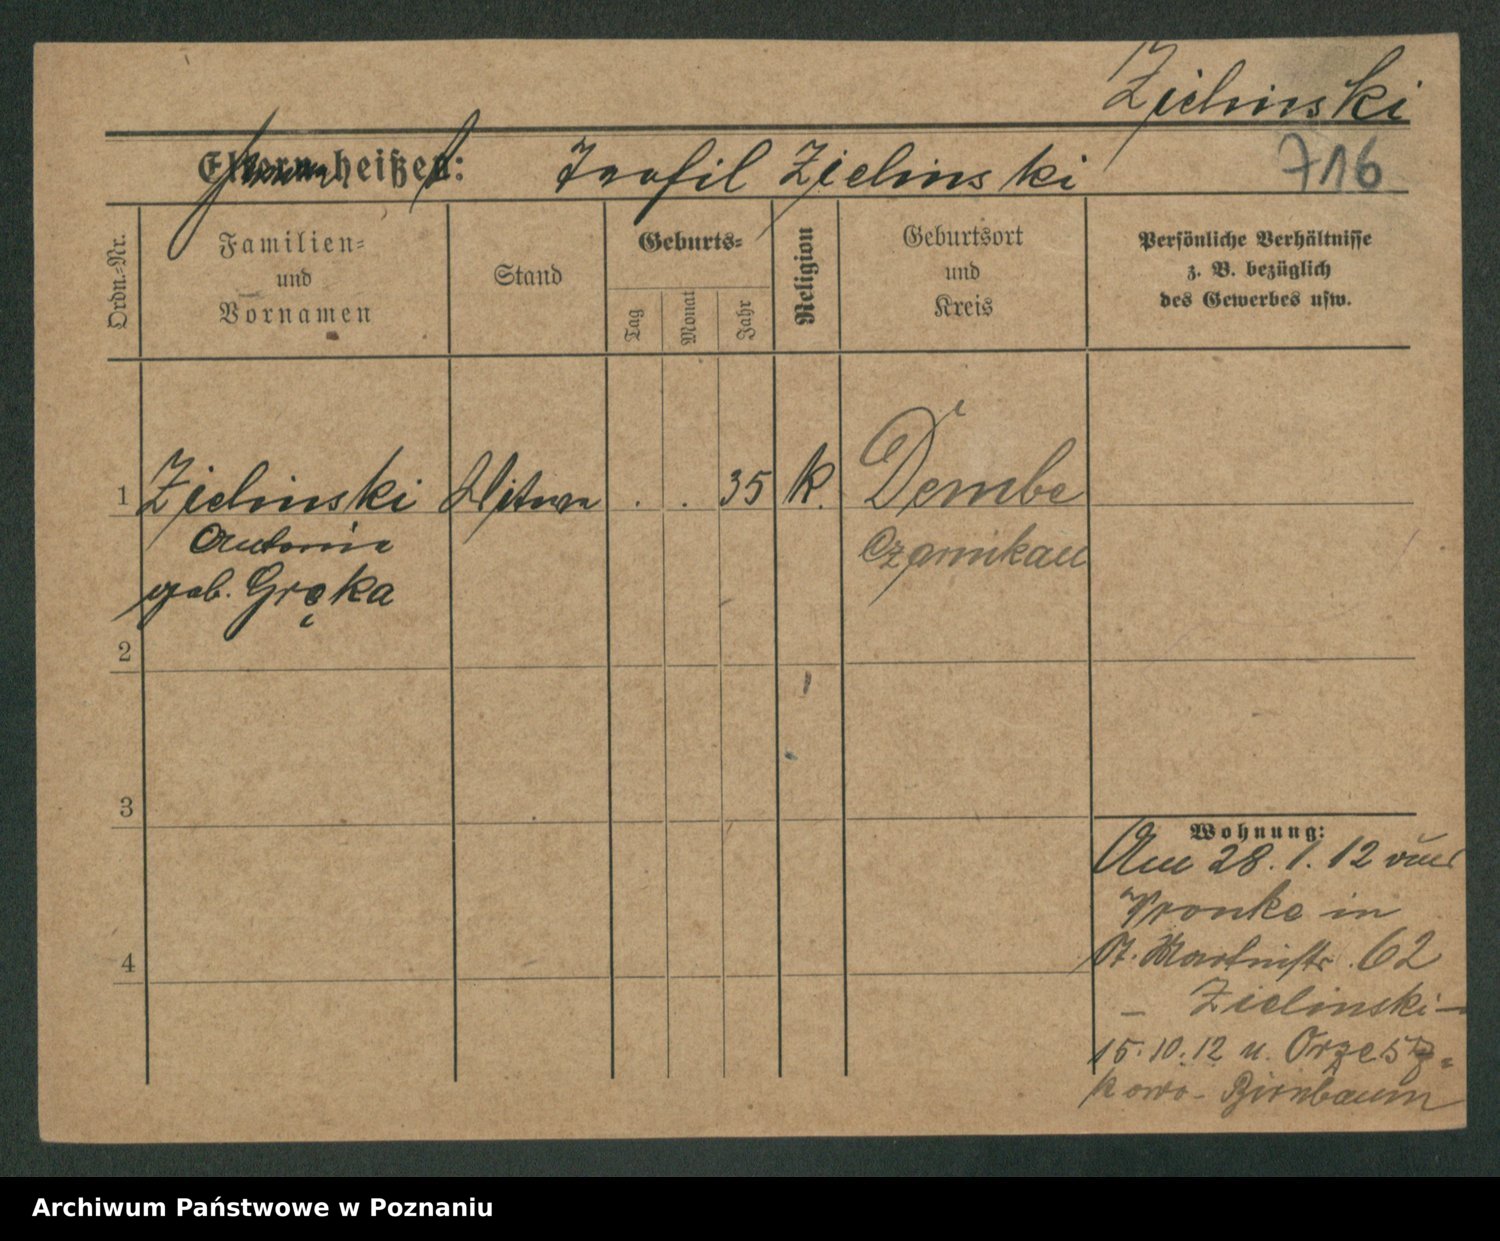 Zielinski
Eltern heißen: Trofil Zielinski
716
Ordn.-Nr.
Familien-
und
Vornamen
Stand
Geburts-
Tag
Monat
Jahr
Religion
Geburtsort
und
Kreis
Persönliche Verhältnisse
z. B. bezüglich
des Gewerbes usw.
1 Zielinski Witwe . . 35 k. Dembe
Antonie Czarnikau
geb. Gręka
2
3
4
Wohnung:
Am 28. 1. 12 von
Wronke in
St. Martinstr. 62
– Zielinski –
15.10.12 n. Orzesz-
kowo - Birnbaum
Archiwum Państwowe w Poznaniu